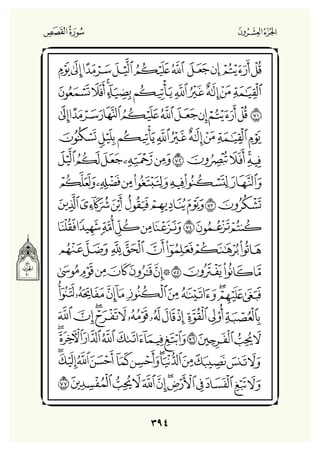 الجزء العشرون سورة القصص
قُلْ أَرَءَيْتُمْ إِن جَعَلَ ٱللَّهُ عَلَيْكُمُ ٱلَّيْلَ سَرْمَدًا إِلَىٰ يَوْمِ
ٱلْقِيَـٰمَةِ مَنْ إِلَـٰهٌ غَيْرُ ٱللَّهِ يَأْتِيكُم بِضِيَآءٍ ۖ أَفَلَا تَسْمَعُونَ
٧١ قُلْ أَرَءَيْتُمْ إِن جَعَلَ ٱللَّهُ عَلَيْكُمُ ٱلنَّهَارَ سَرْمَدًا إِلَىٰ
يَوْمِ ٱلْقِيَـٰمَةِ مَنْ إِلَـٰهٌ غَيْرُ ٱللَّهِ يَأْتِيكُم بِلَيْلٍ تَسْكُنُونَ
فِيهِ ۖ أَفَلَا تُبْصِرُونَ ٧٢ وَمِن رَّحْمَتِهِۦ جَعَلَ لَكُمُ ٱلَّيْلَ
وَٱلنَّهَارَ لِتَسْكُنُوا۟ فِيهِ وَلِتَبْتَغُوا۟ مِن فَضْلِهِۦ وَلَعَلَّكُمْ
تَشْكُرُونَ ٧٣ وَيَوْمَ يُنَادِيهِمْ فَيَقُولُ أَيْنَ شُرَكَآءِىَ ٱلَّذِينَ
كُنتُمْ تَزْعُمُونَ ٧٤ وَنَزَعْنَا مِن كُلِّ أُمَّةٍ شَهِيدًا فَقُلْنَا
هَاتُوا۟ بُرْهَـٰنَكُمْ فَعَلِمُوٓا۟ أَنَّ ٱلْحَقَّ لِلَّهِ وَضَلَّ عَنْهُم
مَّا كَانُوا۟ يَفْتَرُونَ ٧٥ ۞ إِنَّ قَـٰرُونَ كَانَ مِن قَوْمِ مُوسَىٰ
فَبَغَىٰ عَلَيْهِمْ ۖ وَءَاتَيْنَـٰهُ مِنَ ٱلْكُنُوزِ مَآ إِنَّ مَفَاتِحَهُۥ لَتَنُوٓأُ
بِٱلْعُصْبَةِ أُو۟لِى ٱلْقُوَّةِ إِذْ قَالَ لَهُۥ قَوْمُهُۥ لَا تَفْرَحْ ۖ إِنَّ ٱللَّهَ
لَا يُحِبُّ ٱلْفَرِحِينَ ٧٦ وَٱبْتَغِ فِيمَآ ءَاتَىٰكَ ٱللَّهُ ٱلدَّارَ ٱلْـَٔاخِرَةَ ۖ
وَلَا تَنسَ نَصِيبَكَ مِنَ ٱلدُّنْيَا ۖ وَأَحْسِن كَمَآ أَحْسَنَ ٱللَّهُ إِلَيْكَ ۖ
وَلَا تَبْغِ ٱلْفَسَادَ فِى ٱلْأَرْضِ ۖ إِنَّ ٱللَّهَ لَا يُحِبُّ ٱلْمُفْسِدِينَ ٧٧
٣٩٤